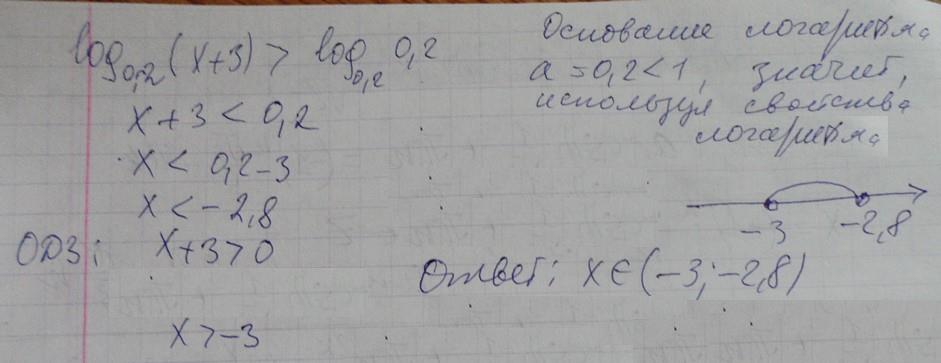 log₀,₂(x+3) > log₀,₂ 0,2
x+3 < 0,2
x < 0,2-3
x < -2,8
ОДЗ: x+3>0
x > -3
Основание логарифма
a = 0,2 < 1, значит,
используя свойства
логарифма
-3 -2,8
Ответ: x∈(-3;-2,8)